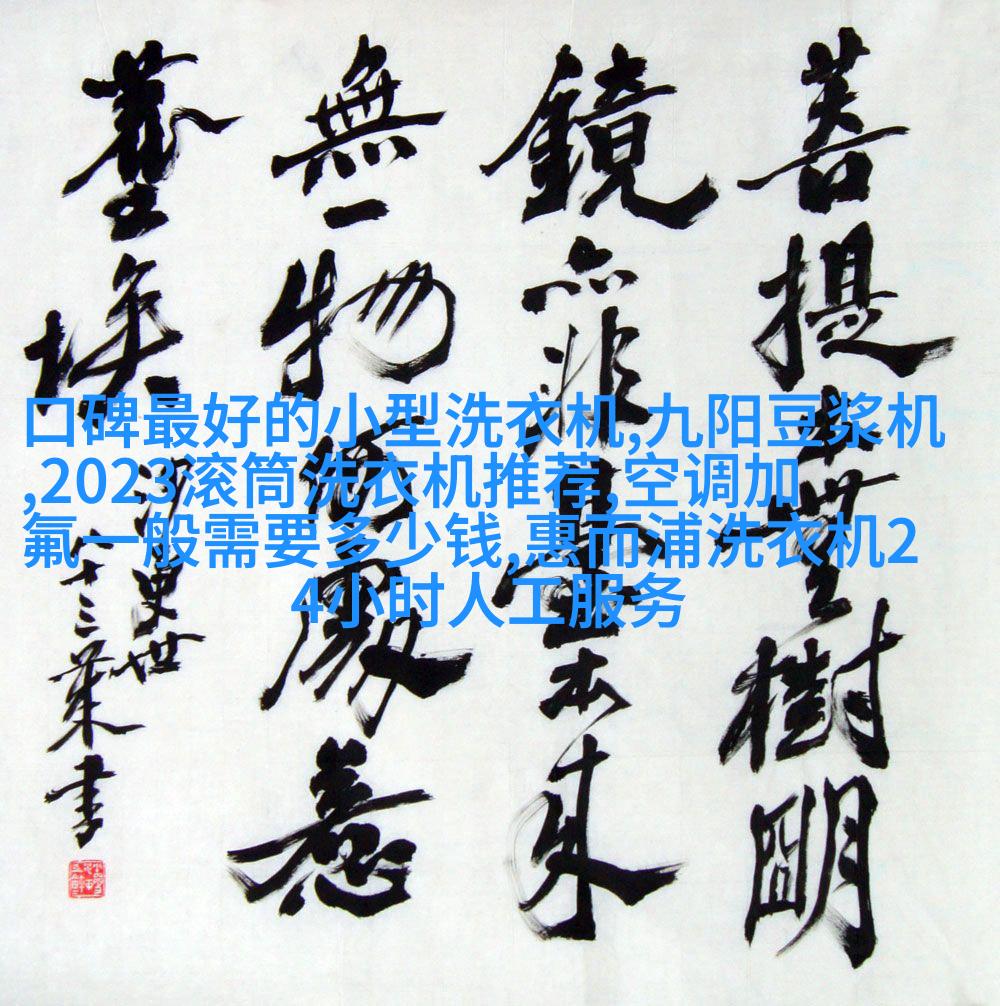 菩提本無樹明
鏡亦非臺本来
無一物何處惹
塵埃
史世
八十三
書
口碑最好的小型洗衣机,九阳豆浆机
,2023滚筒洗衣机推荐,空调加
氟一般需要多少钱,惠而浦洗衣机2
4小时人工服务